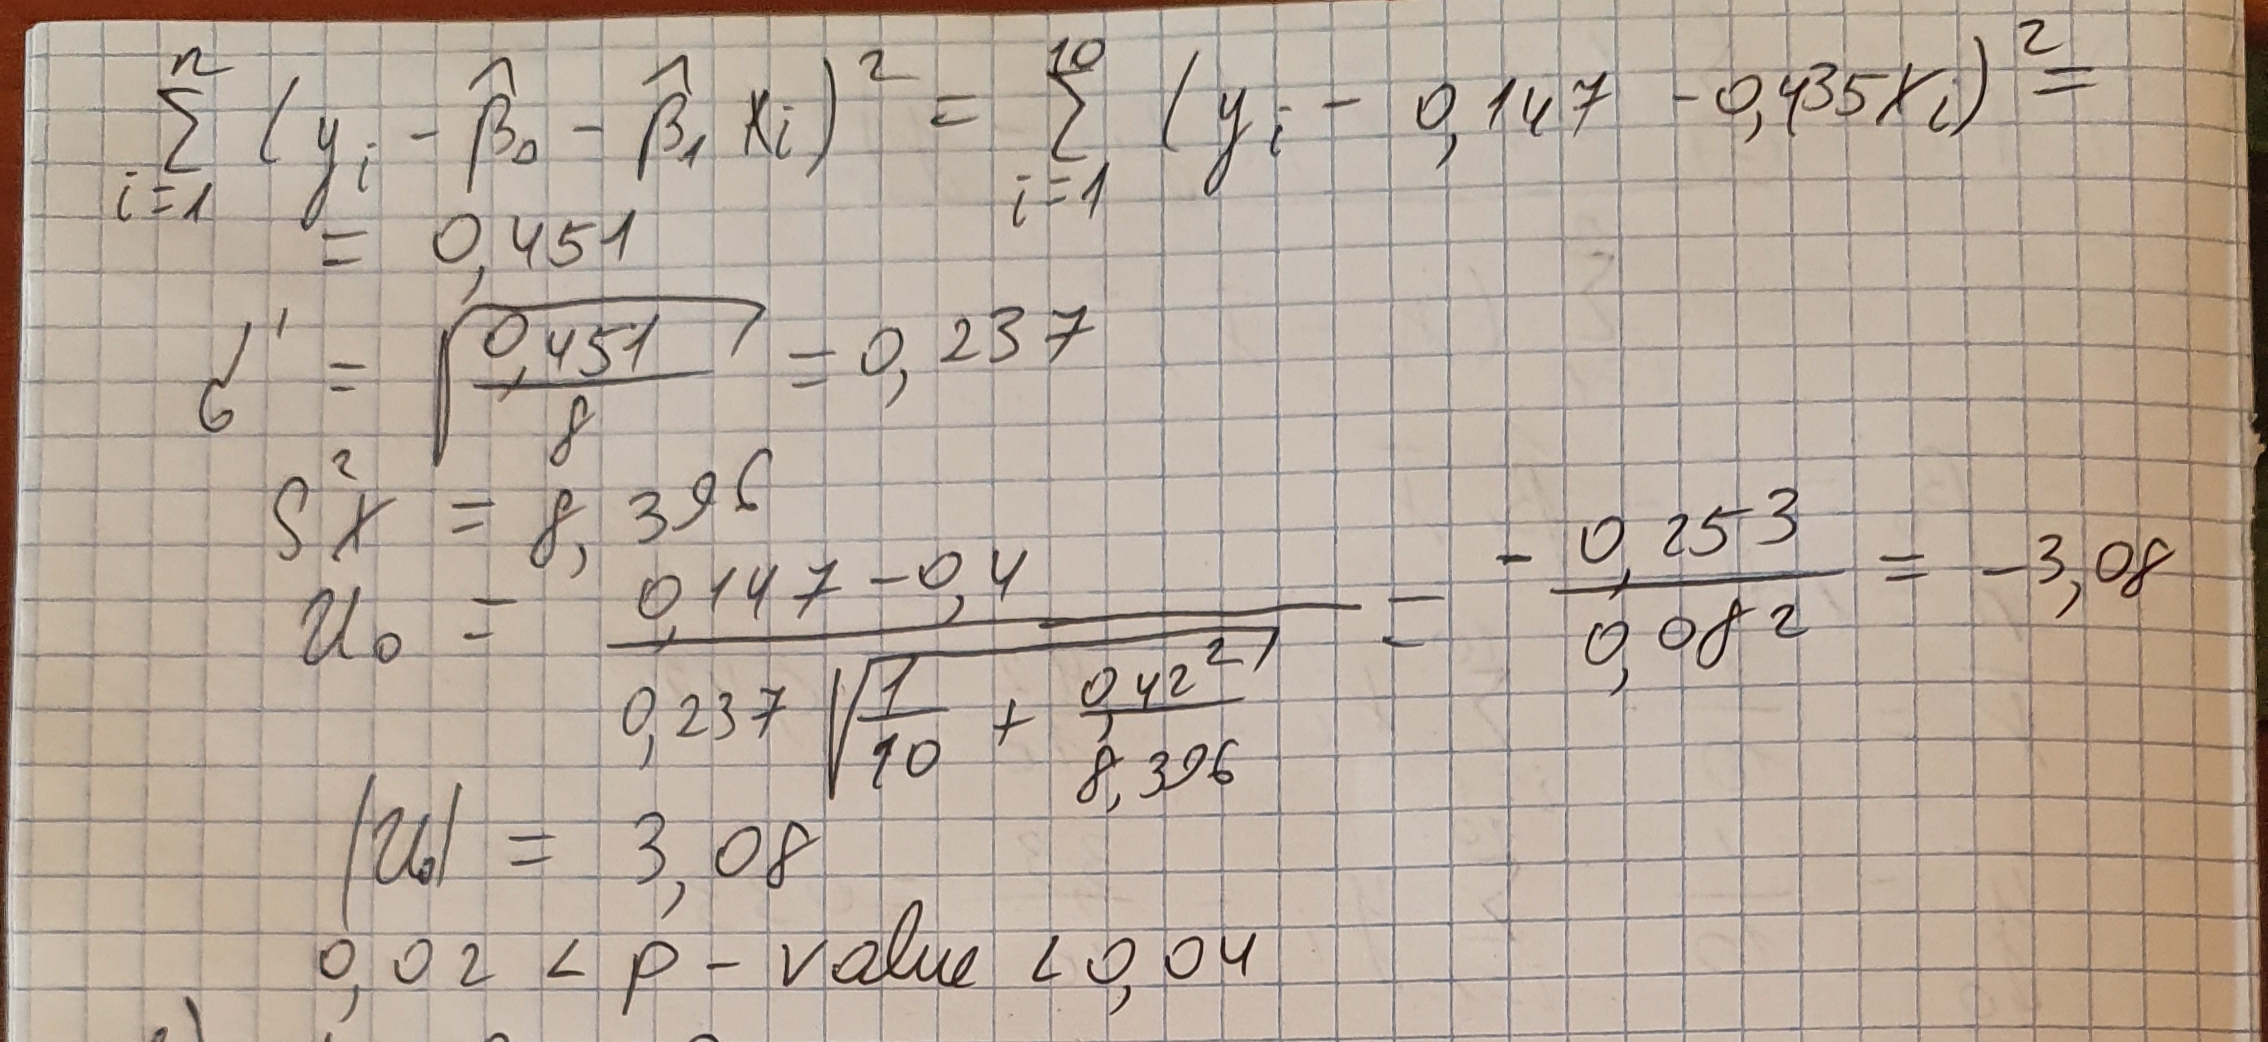 \sum_{i=1}^{n} (y_i - \hat{\beta}_0 - \hat{\beta}_1 x_i)^2 = \sum_{i=1}^{10} (y_i - 0,147 - 0,435x_i)^2 =
= 0,451
σ' = \sqrt{\frac{0,451}{8}} = 0,237
S^2x = 8,396
U_0 = \frac{0,147 - 0,4}{0,237 \sqrt{\frac{1}{10} + \frac{0,42^2}{8,396}}} = -\frac{0,253}{0,082} = -3,08
|U_0| = 3,08
0,02 < p - value < 0,04